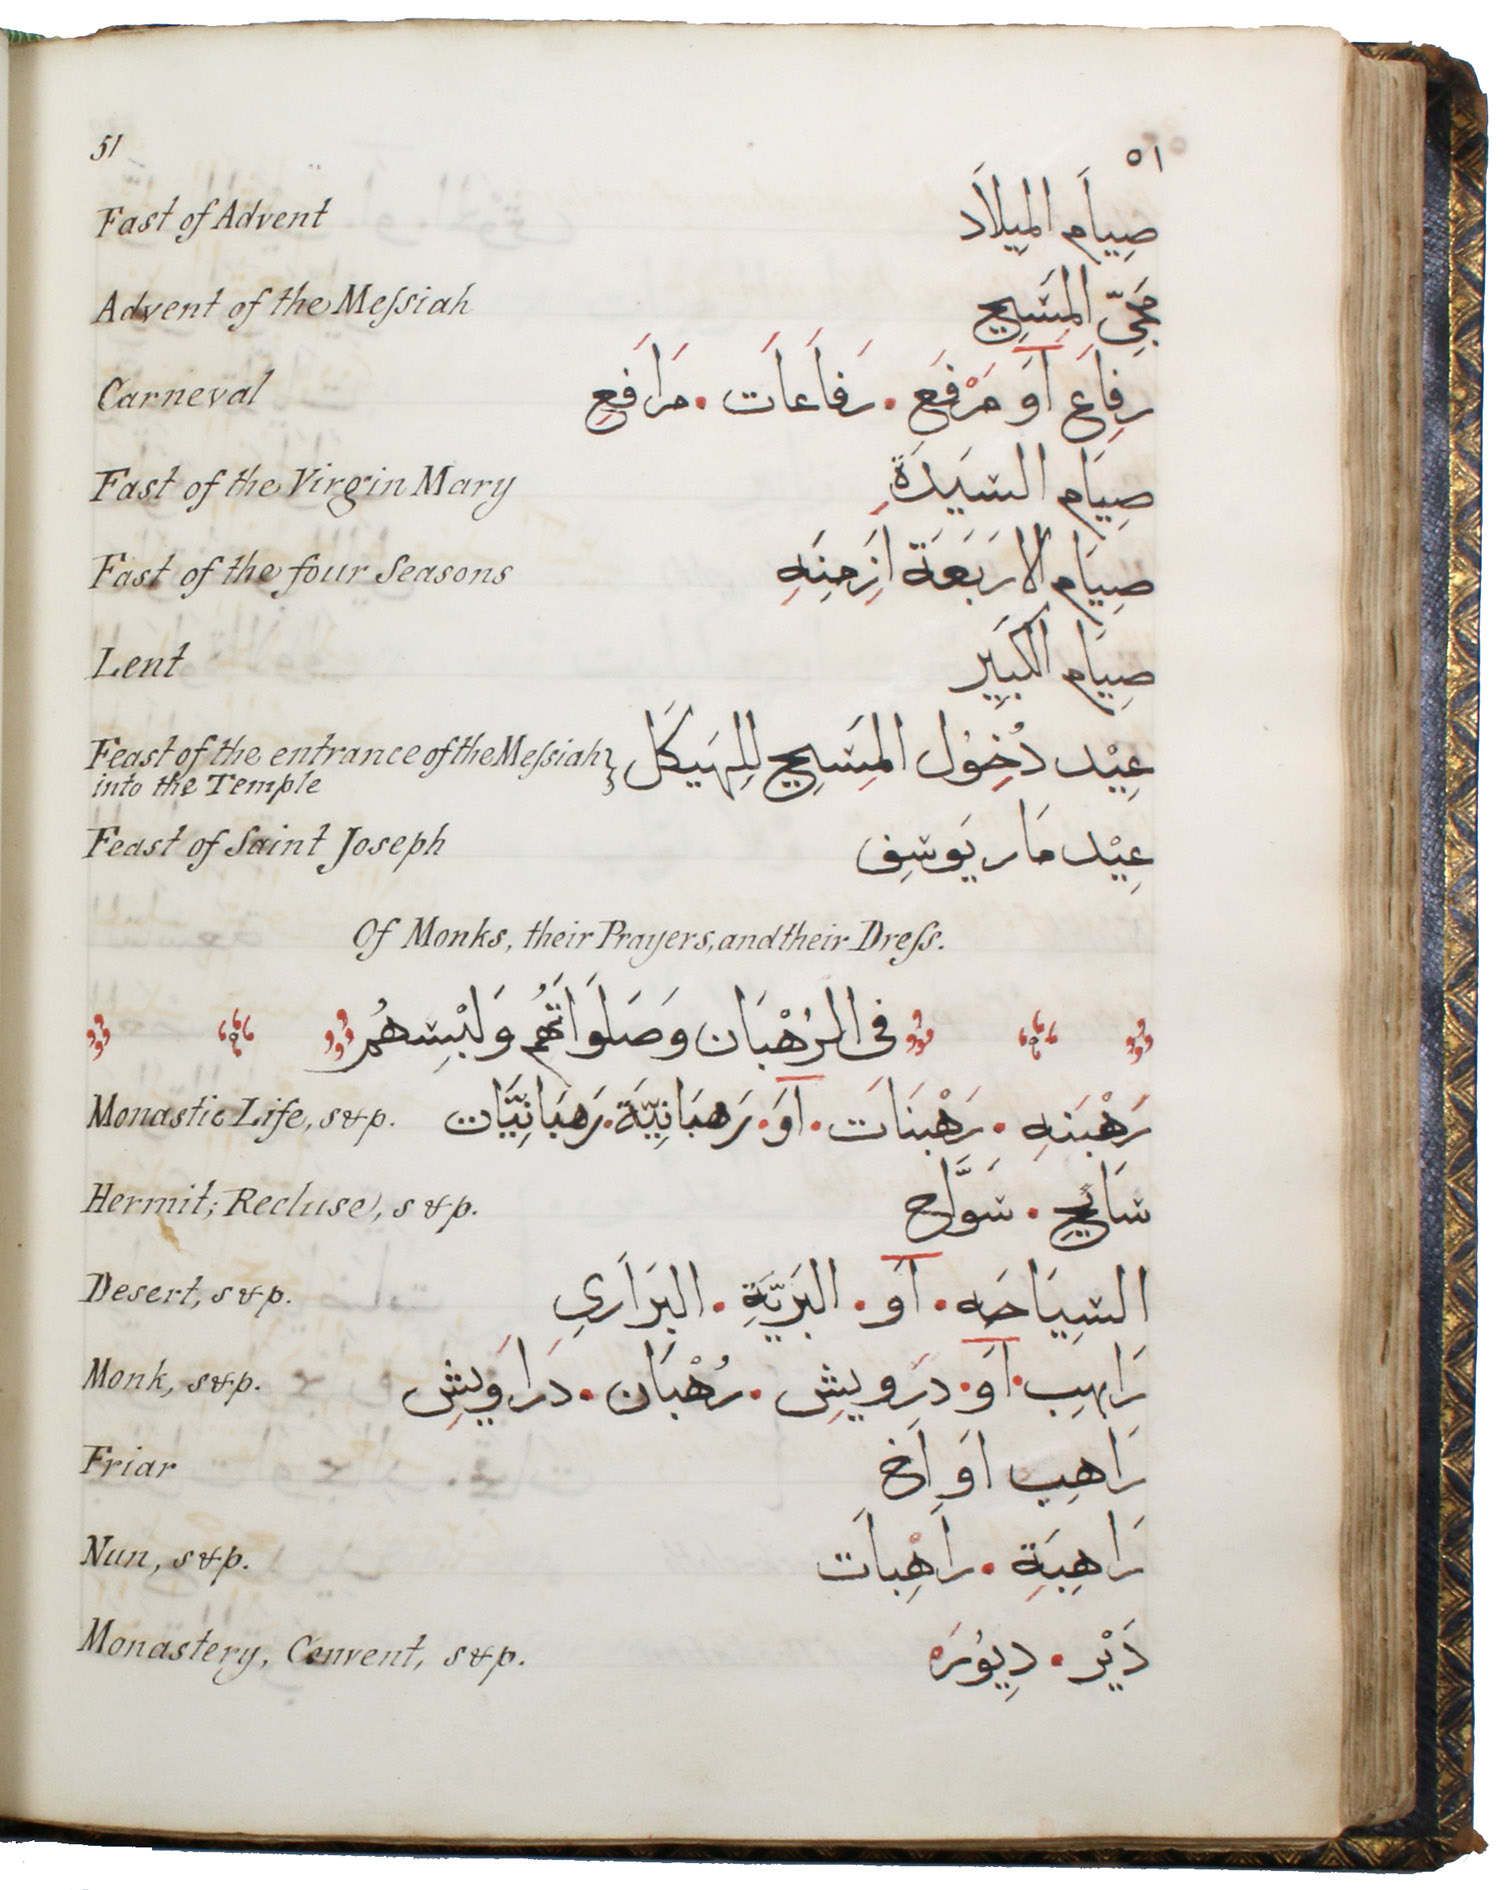 51 ٥١
Fast of Advent صِيَام المِيلَاد
Advent of the Meſsiah مَجِيِّ المَسِيح
Carneval رِفَاَع اَوَ مَرْفَع . رَفَاَعَات . مَرَافِع
Fast of the Virgin Mary صِيَام السَيِدَة
Fast of the four Seasons صِيَام الارَبَعَة اَزمِنَه
Lent صِيَام الكَبِير
Feast of the entrance of the Meſsiah } عِيْد دُخُول المَسِيح لِلهَيكَل
into the Temple
Feast of Saint Joseph عِيْد مَار يَوسِف
Of Monks, their Prayers, and their Dreſs.
في الرُهْبَان وَصَلَوَاتَهُم وَلبْسِهُم
Monastic Life, s&p. رَهْبَنَه . رَهْبَنَات . اَوَ . رَهبَانِيَّة . رَهبَانِيَّات
Hermit; Recluse, s&p. سَايِح . سَوَّاح
Desert, s&p. السِيَاحَه . اَوَ . البَرِيَّة . البَرَارِي
Monk, s&p. رَاهِب . اَوَ . دَروِيش . رُهْبَان . دَرَاوِيش
Friar رَاهِب اَوَ اَخ
Nun, s&p. رَاهِبَة . رَاهِبَات
Monastery, Convent, s&p. دَيْر . دِيُورَه